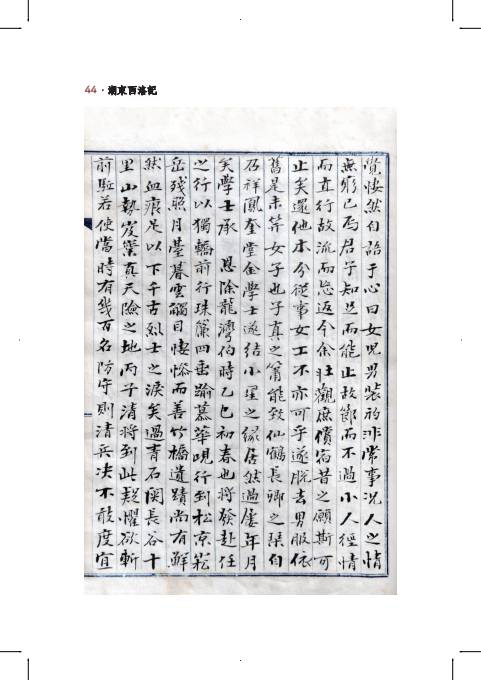 44 · 湖東西洛記
覺悽然自語于心曰女兒男裝的非常事况人之情
無窮已焉君子知足而能止故節而不過小人經情
而直行故流而忘返今余壯觀庶償宿昔之願斯可
止矣還他本分從事女工不亦可乎遂脫去男服依
舊是未笄女子也子真之簫能致仙鶴長卿之琹自
乃祥鳳奎堂金學士遂結小星之緣居然過屢年月
矣學士承 恩除龍灣伯時乙巳初春也將發赴任
之行以獨轎前行珠簾四垂踰慕華峴行到松京崧
岳殘照月臺暮雲觸目悽慘而善竹橋遺蹟尚有鮮
然血痕足以下千古烈士之淚矣過青石関長谷十
里山勢岌嶪真天險之地丙子清將到此疑懼欲斬
前駈若使當時有幾百名防守則清兵决不敢度宜